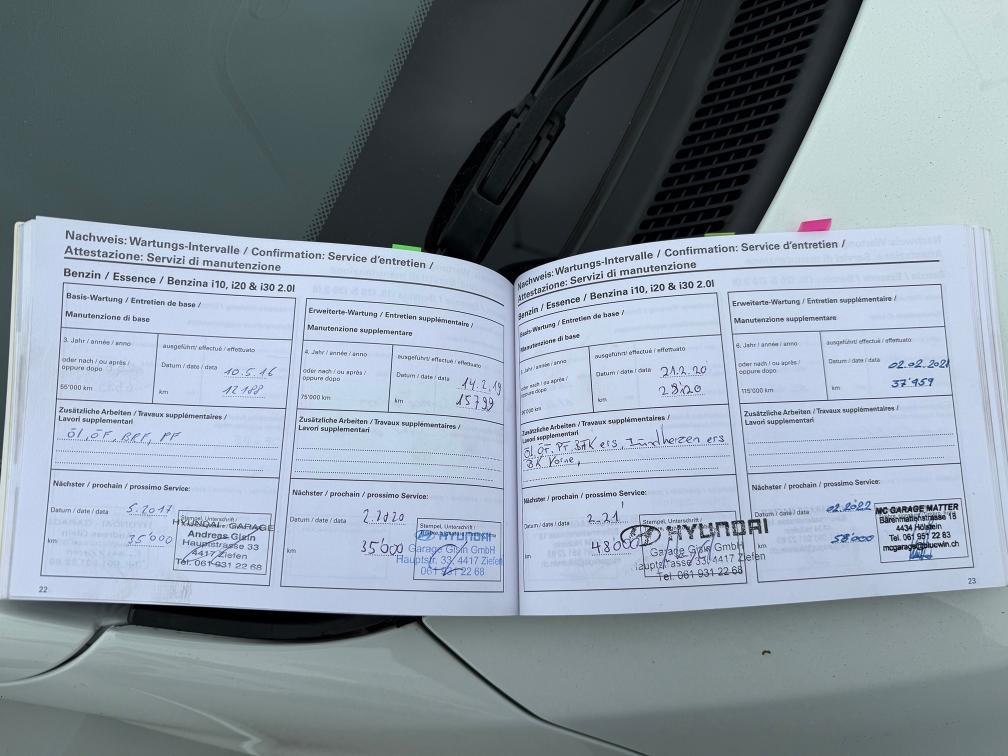 Nachweis: Wartungs-Intervalle / Confirmation: Service d'entretien /
Attestazione: Servizi di manutenzione
Benzin / Essence / Benzina i10, i20 & i30 2.0l
Basis-Wartung / Entretien de base /
Manutenzione di base
3. Jahr / année / anno
ausgeführt/ effectué / effettuato
oder nach / ou après /
oppure dopo
Datum / date / data
10.5.16
55'000 km
km
12188
Zusätzliche Arbeiten / Travaux supplémentaires /
Lavori supplementari
Öl, ÖF, BRF, PF
Nächster / prochain / prossimo Service:
Datum / date / data
5.2017
km
35'000
Stempel, Unterschrift /
HYUNDAI - GARAGE
Andreas Gisin
Hauptstrasse 33
4417 Ziefen
Tel. 061 931 22 68
22
Erweiterte-Wartung / Entretien supplémentaire /
Manutenzione supplementare
4. Jahr / année / anno
ausgeführt/ effectué / effettuato
oder nach / ou après /
oppure dopo
Datum / date / data
14.2.19
75'000 km
km
15799
Zusätzliche Arbeiten / Travaux supplémentaires /
Lavori supplementari
Nächster / prochain / prossimo Service:
Datum / date / data
2.2020
km
35'000
Stempel, Unterschrift /
HYUNDAI
Garage Gisin GmbH
Hauptstr. 33, 4417 Ziefen
061 931 22 68
Nachweis: Wartungs-Intervalle / Confirmation: Service d'entretien /
Attestazione: Servizi di manutenzione
Benzin / Essence / Benzina i10, i20 & i30 2.0l
Basis-Wartung / Entretien de base /
Manutenzione di base
Jahr / année / anno
ausgeführt/ effectué / effettuato
oder nach / ou après /
oppure dopo
Datum / date / data
21.2.20
km
28'120
Zusätzliche Arbeiten / Travaux supplémentaires /
Lavori supplementari
Öl, ÖF, PF, ers, Zündkerzen ers
BK Vorne,
Nächster / prochain / prossimo Service:
Datum / date / data
2.21
km
48000
HYUNDAI
Garage Gisin GmbH
Hauptstrasse 33, 4417 Ziefen
Tel. 061 931 22 68
Erweiterte-Wartung / Entretien supplémentaire /
Manutenzione supplementare
6. Jahr / année / anno
ausgeführt/ effectué / effettuato
oder nach / ou après /
oppure dopo
Datum / date / data
02.02.2021
115'000 km
km
37'959
Zusätzliche Arbeiten / Travaux supplémentaires /
Lavori supplementari
Nächster / prochain / prossimo Service:
Datum / date / data
02.2022
km
58'000
MC GARAGE MATTER
Bärenmattenstrasse 18
4434 Hölstein
Tel. 061 951 22 83
mcgarage@bluewin.ch
23